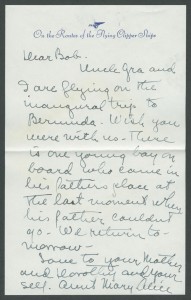 On the Routes of the Flying Clipper Ships
Dear Bob.
Uncle Ira and
I are flying on the
inaugural trip to
Bermuda. Wish you
were with us - There
is one young boy on
board who came in
his fathers place at
the last moment when
his father couldnt
go - We return to-
morrow -
Love to your Mother
and Dorothy and your
self. Aunt Mary Alice